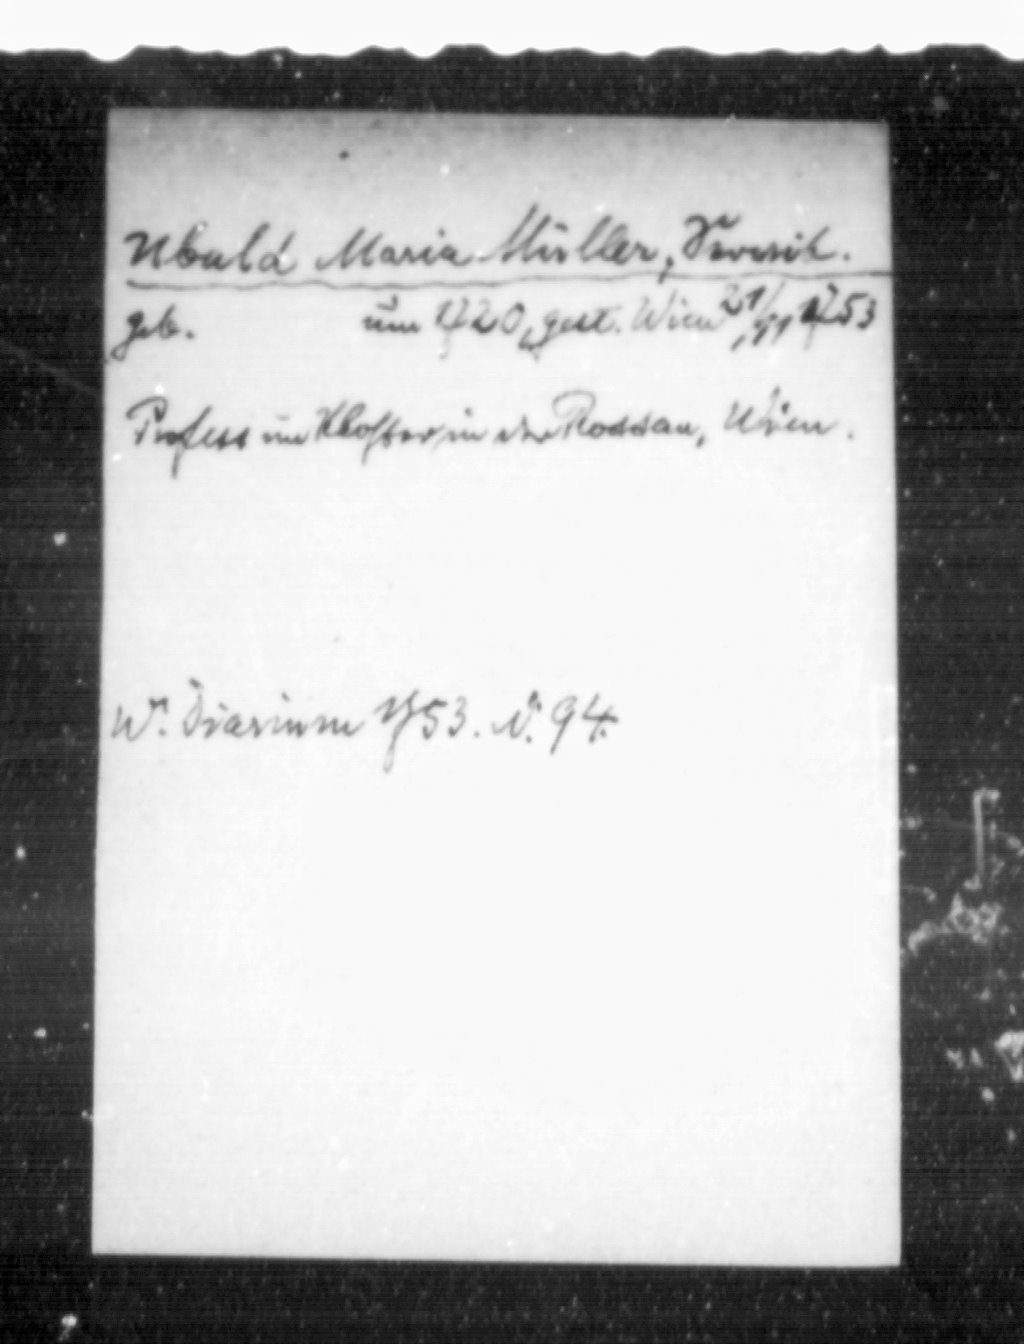 Ubald Maria Müller, Servit.
geb. um 1720, gest. Wien 21/11 1753
Profess im Kloster in der Rossau, Wien.
Wr. Diarium 1753. N. 94.